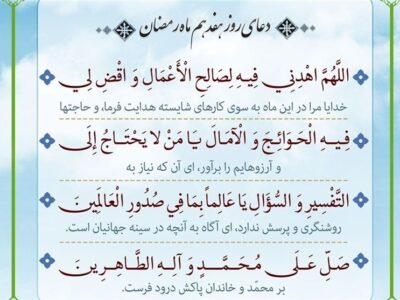 دعای روز هفدهم ماه رمضان
اللَّهُمَّ اهْدِنِي فِيهِ لِصَالِحِ الْأَعْمَالِ وَ اقْضِ لِي
خدایا مرا در این ماه به سوی کارهای شایسته هدایت فرما، و حاجتها
فِيهِ الْحَوَائِجَ وَ الْآمَالَ يَا مَنْ لا يَحْتَاجُ إِلَى
و آرزوهایم را برآور، ای آن که نیاز به
التَّفْسِيرِ وَ السُّؤَالِ يَا عَالِماً بِمَا فِي صُدُورِ الْعَالَمِينَ
روشنگری و پرسش ندارد، ای آگاه به آنچه در سینه جهانیان است.
صَلِّ عَلَى مُحَمَّدٍ وَ آلِهِ الطَّاهِرِينَ
بر محمّد و خاندان پاکش درود فرست.